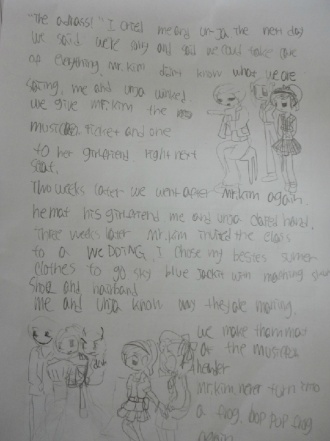 I cried me and unja The next day
we said were any and said we could take care
of everything Mr.Kim don't know what we are
saying, me and unja winked
we give Mr.Kim the
musical ticket and one
to her girlfriend right next
seat.
Two weeks later we went after Mr.Kim again
he met his girlfriend me and unja
Three weeks later Mr.Kim invited the class
to a WEDDING I chose my besties summer
clothes to go sky blue jacket with matching
shoe and hairband
me and unja know why they are marring.
we make them meet
at the musical
theater
Mr.Kim never turn into
a frog. POP POP frog
again